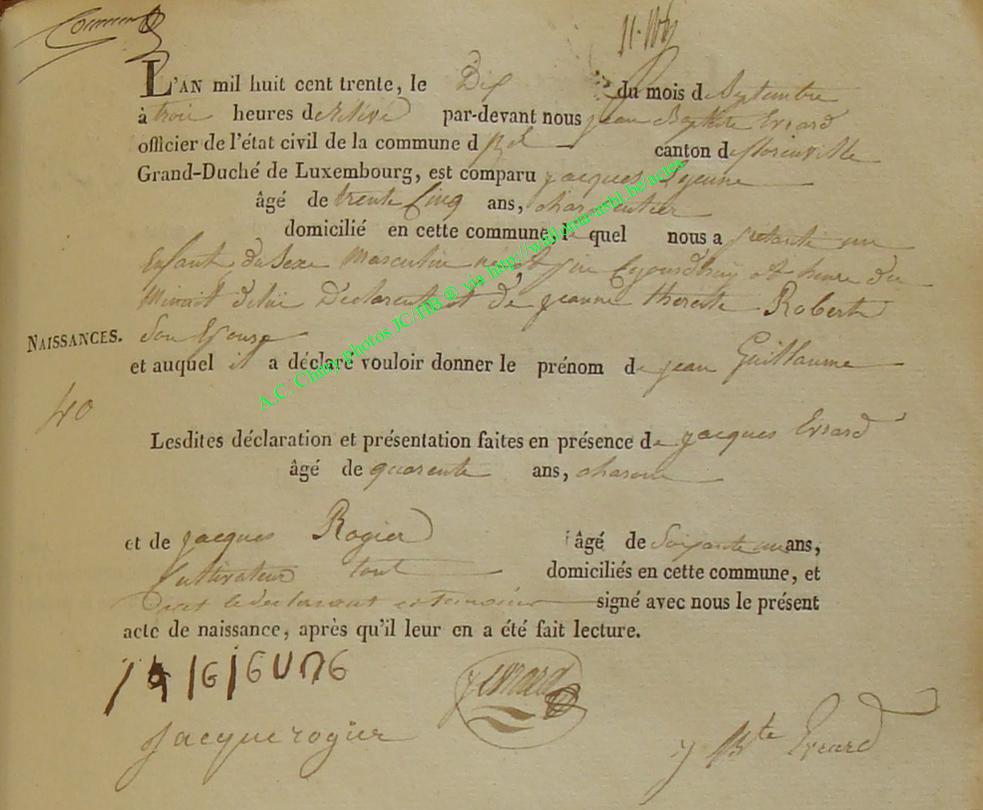 L'AN mil huit cent trente, le Dix du mois de Septembre
à trois heures de relevé par-devant nous jean Baptiste Evrard
officier de l'état civil de la commune d canton de florenville
Grand-Duché de Luxembourg, est comparu jacques Lejeune
âgé de trente Cinq ans, charpentier
domicilié en cette commune, le quel nous a présenté un
Enfant du Sexe Masculin né
Minuit de lui Déclarent et de jeanne therese Robert
NAISSANCES. Son Epouse
et auquel il a déclaré vouloir donner le prénom de jean Guillaume
40
Lesdites déclaration et présentation faites en présence de jacques Evrard
âgé de quarente ans, charon
et de jacques Rogier âgé de Soixante un ans,
Cultivateur tout domiciliés en cette commune, et
le declarant et temoins signé avec nous le présent
acte de naissance, après qu'il leur en a été fait lecture.
jacque rogier
j Evrard
j Bte Evrard
A.C. Chiny photos JC/JJB ® via http://wallonia-asbl.be/actes